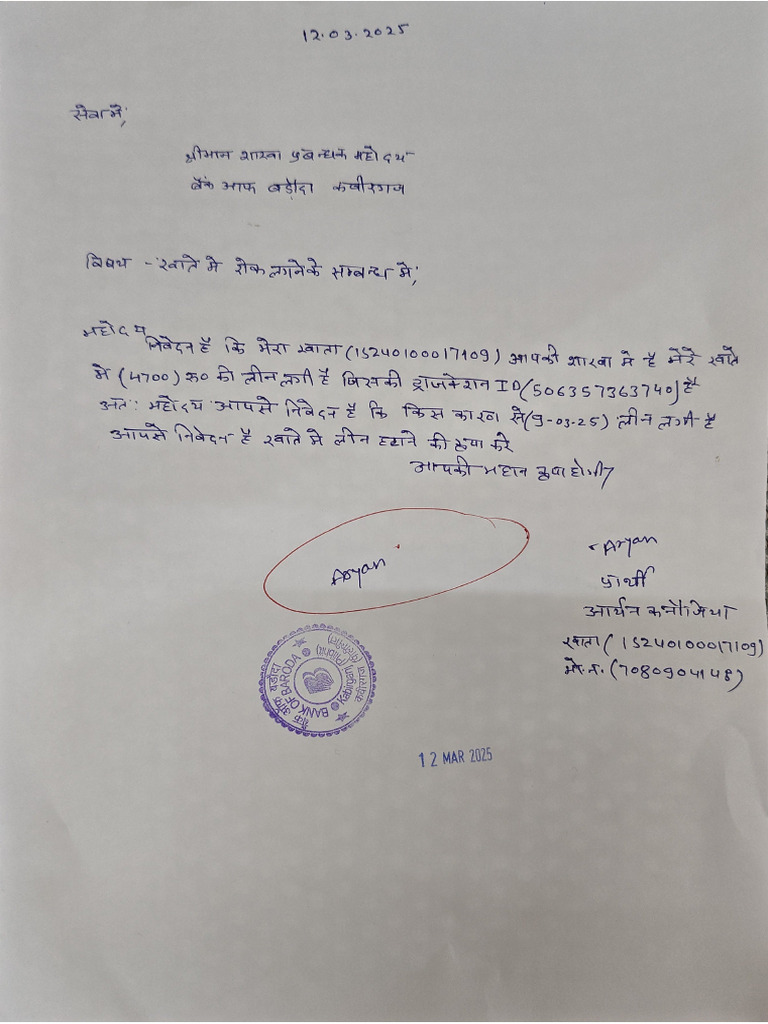 12.03.2025
सेवा में,
श्रीमान शाखा प्रबन्धक महोदय
बैंक आफ बड़ौदा कबीरगंज
विषय - खाते मे रोक लगाने के सम्बन्ध मे,
महोदय
निवेदन है कि मेरा खाता (15240100017109) आपकी शाखा मे है मेरे खाते
मे (4700) रू० की लीन लगी है जिसकी ट्रांजक्शन ID (506357363740) है
अतः महोदय आपसे निवेदन है कि किस कारण से (9-03-25) लीन लगी है
आपसे निवेदन है खाते मे लीन हटाने की कृपा करे
आपकी महान कृपा होगी
Aryan
Aryan
प्रार्थी
आर्यन कनौजिया
खाता (15240100017109)
मो.न. (7080904148)
बैंक ऑफ बड़ौदा
BANK OF BARODA
(Pilibhit)
12 MAR 2025